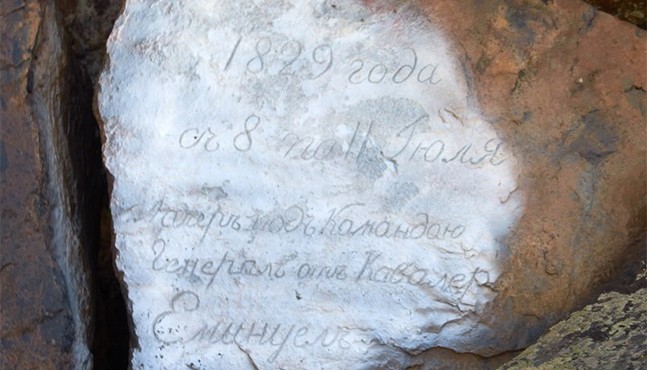 1829 года
съ 8 по 11 Июля
Лагерь подъ Командою
Генералъ отъ Кавалер
Емануель